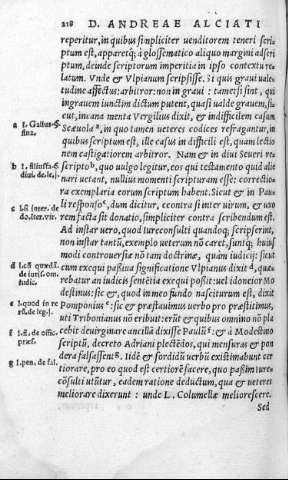 218 D. ANDREAE ALCIATI
reperitur, in quibus simpliciter uenditorem teneri scri
ptum est, apparetq; à glossematico aliquo margini adscri
ptum, deinde scriptorum imperitia in ipso contextu re
latum. Vnde & Vlpianum scripsisse. Si quis graui uale-
tudine affectus: arbitror: non in graui: tametsi sint, qui
ingrauem iunctim dictum putent, quasi ualde grauem, si
cut, incana menta Vergilius dixit, & indifficilem casum
a l. Gallus. §.
Scæuola a, in quo tamen ueteres codices refragantur, in
quibus scriptum est, ille casus in difficili est, quam lectio
nem castigatiorem arbitror. Nam & in diui Seueri re
scripto b, quo uulgo legitur, eos qui testamento quid alie
nari uetant, nullius momenti scripturam esse: correctio
ra exemplaria eorum scriptum habent. Sicut & in Pau
c
li responso c, dum dicitur, econtra si inter uirum, & uxo
do. iter. vir.
rem facta sit donatio, simpliciter contra scribendum est.
Ad instar uero, quod iureconsulti quandoq; scripserint,
non instar tantũ, exemplo ueterum nõ caret, suntq; huius
modi controuersiæ nõ tam doctrinæ, quàm iudicij: sicut
cum exequi paßiua significatione Vlpianus dixit d, quæ
rebatur an iudicis sententia exequi poßit: uel idoneior Mo
destinus: sic &, quod immeo fundo nasciturum est, dixit
e l. quod in re
Pomponius e: sic & præstauimus uerbo pro præstitimus,
uti Tribonianus nõ eribuit: erũt & quibus omnino nõ pla
cebit deuirginare ancillã dixisse Paulũ f: & à Modestino
præf.
scriptũ, decreto Adriani plectẽdos, qui mensuras & pon
g l. pen. de fal.
dera falsassent g. Iidẽ & sordidũ uerbũ existimabunt cer
tiorare, pro eo quod est certiorẽ facere, quo paßim iure-
cõsulti utũtur, eadem ratione deductum, qua & ueteres
meliorare dixerunt: unde L. Columellæ meliorescere.
Sed